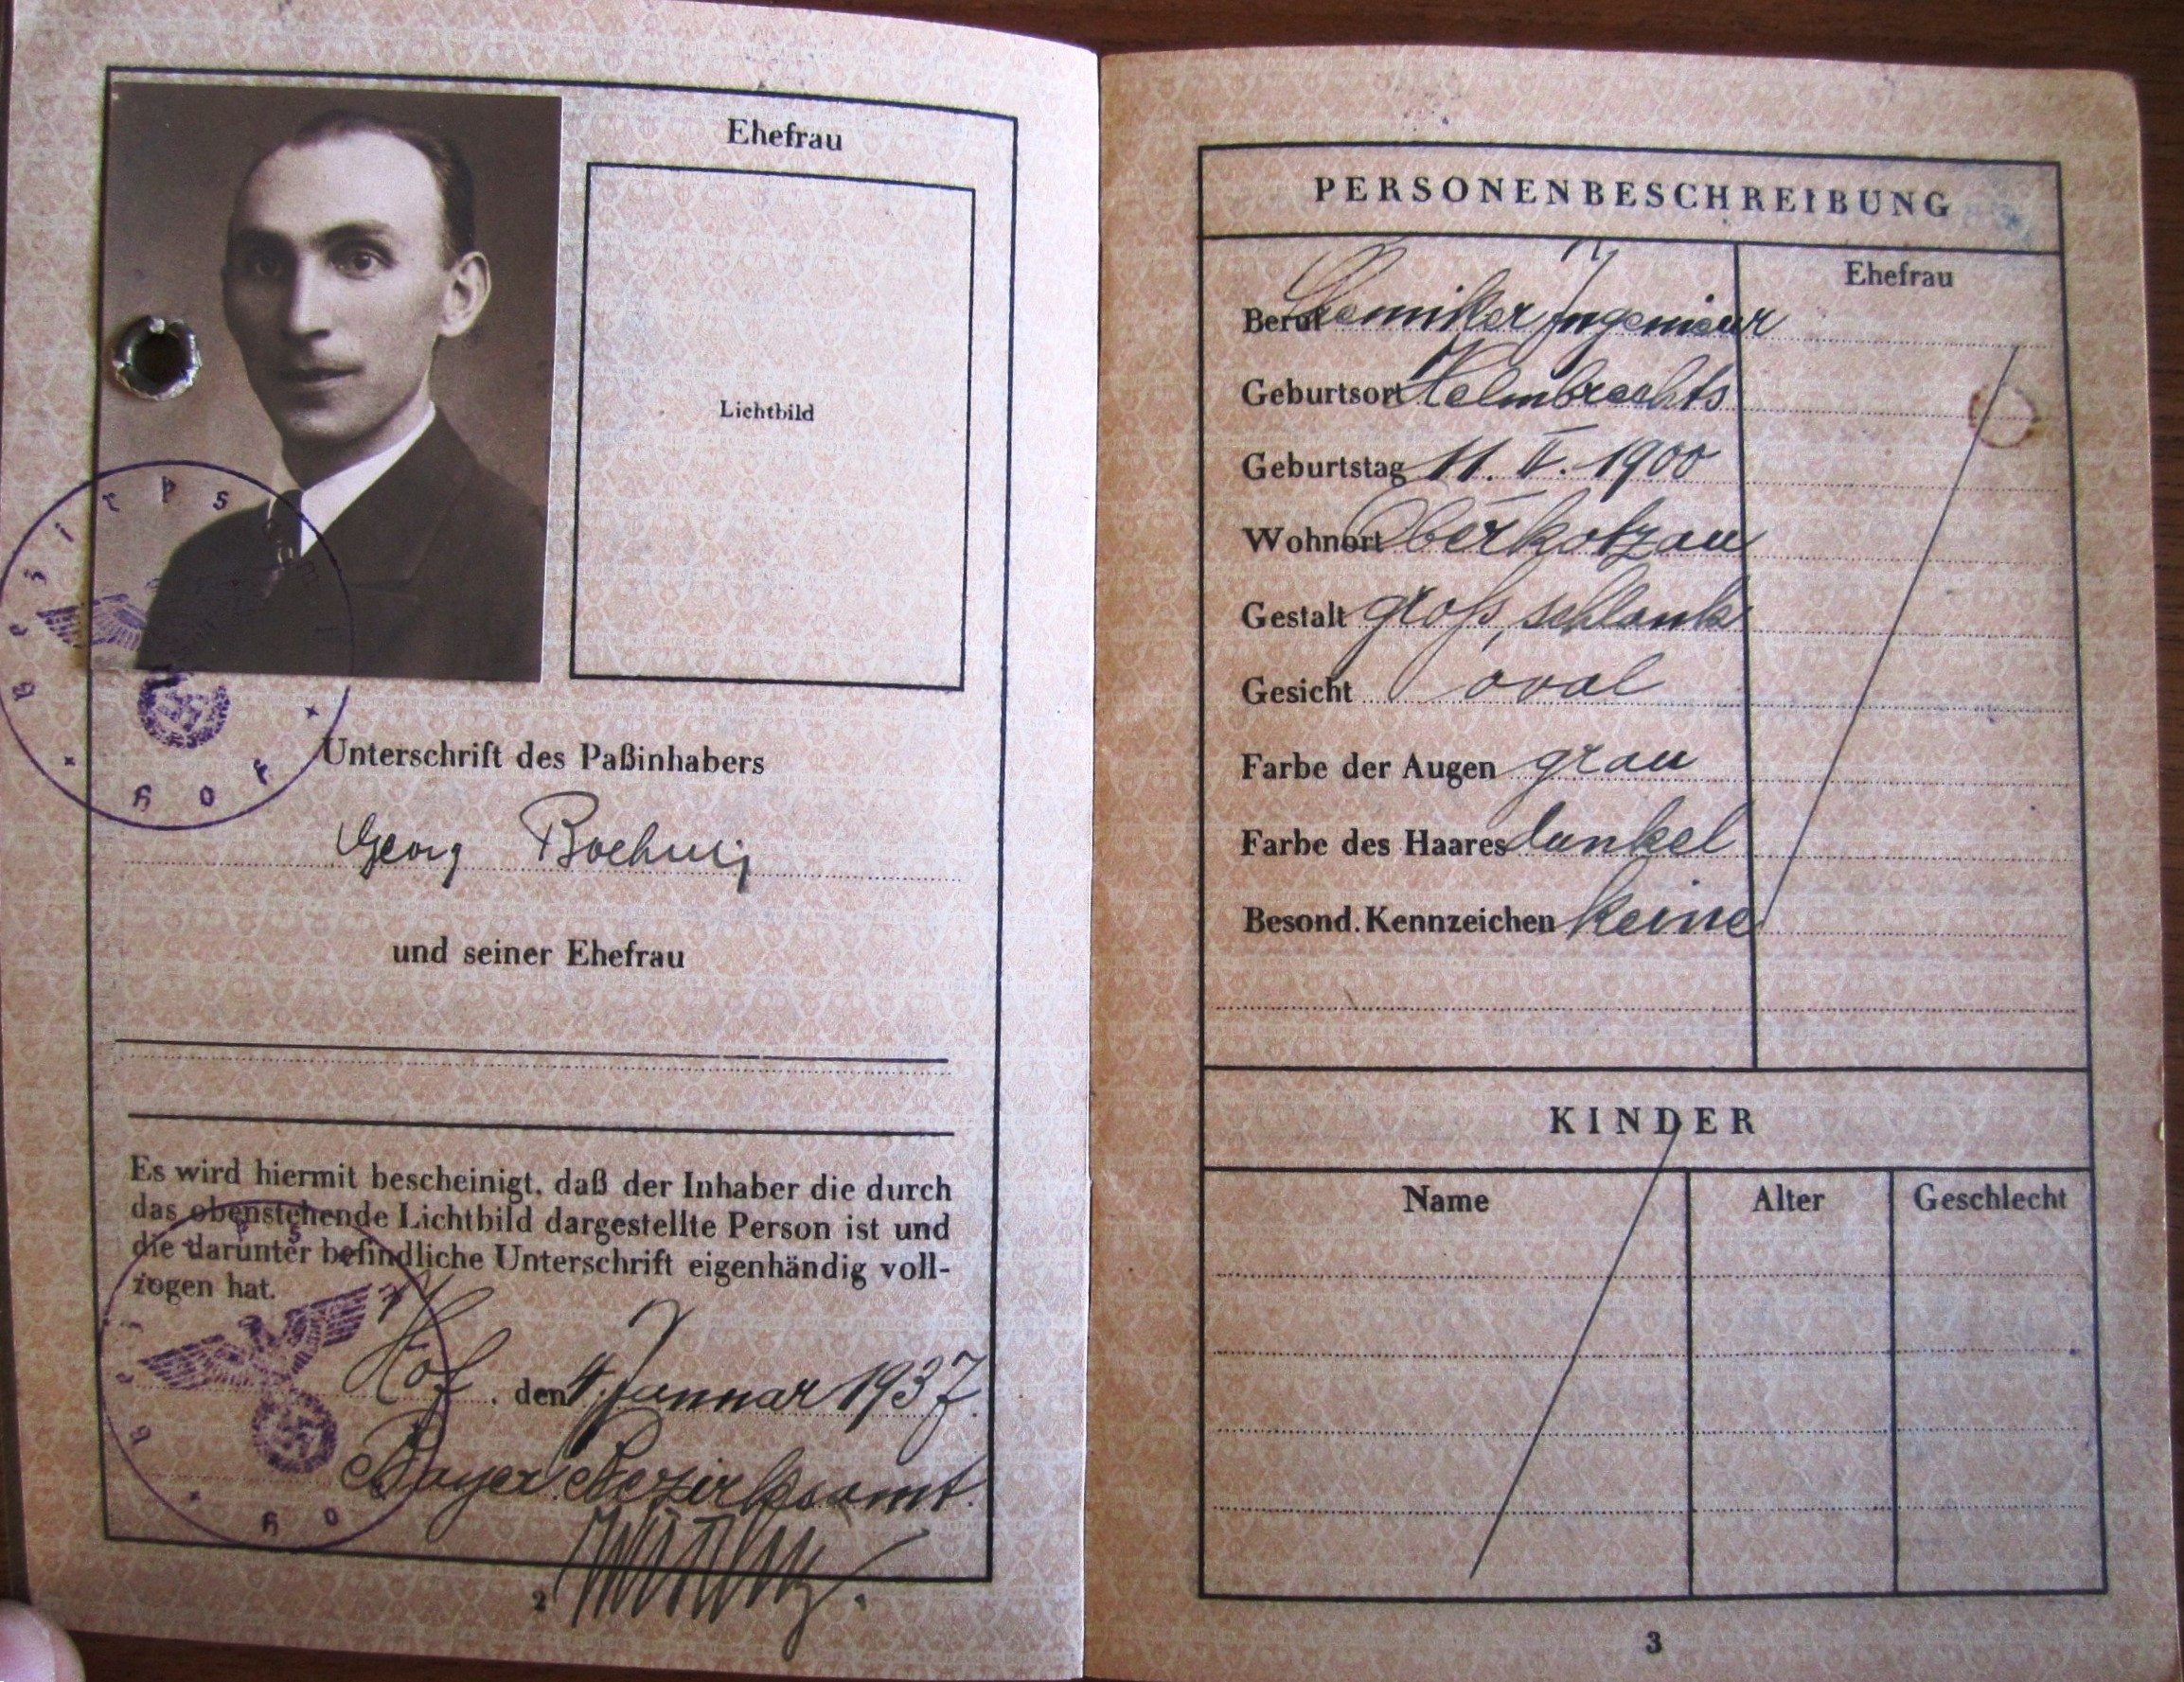 Ehefrau
Lichtbild
Bezirksamt
Hof
Unterschrift des Paßinhabers
Georg
und seiner Ehefrau
Es wird hiermit bescheinigt, daß der Inhaber die durch
das obenstehende Lichtbild dargestellte Person ist und
die darunter befindliche Unterschrift eigenhändig voll-
zogen hat.
Hof, den 4. Januar 1937.
Bayer. Bezirksamt.
2
PERSONENBESCHREIBUNG
Ehefrau
Beruf Chemiker Ingenieur
Geburtsort Helmbrechts
Geburtstag 11. II. 1900
Wohnort Oberkotzau
Gestalt groß, schlank
Gesicht oval
Farbe der Augen grau
Farbe des Haares dunkel
Besond. Kennzeichen keine
KINDER
Name Alter Geschlecht
3